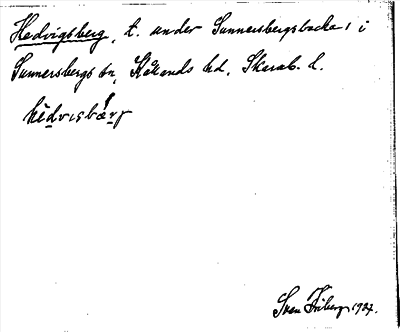 Hedvigsberg, t. under Sunnersbergsbacka 1 i
Sunnersbergs sn, Kållands hd, Skarab. l.
hèdvisbærj
Sven Friberg 1927.